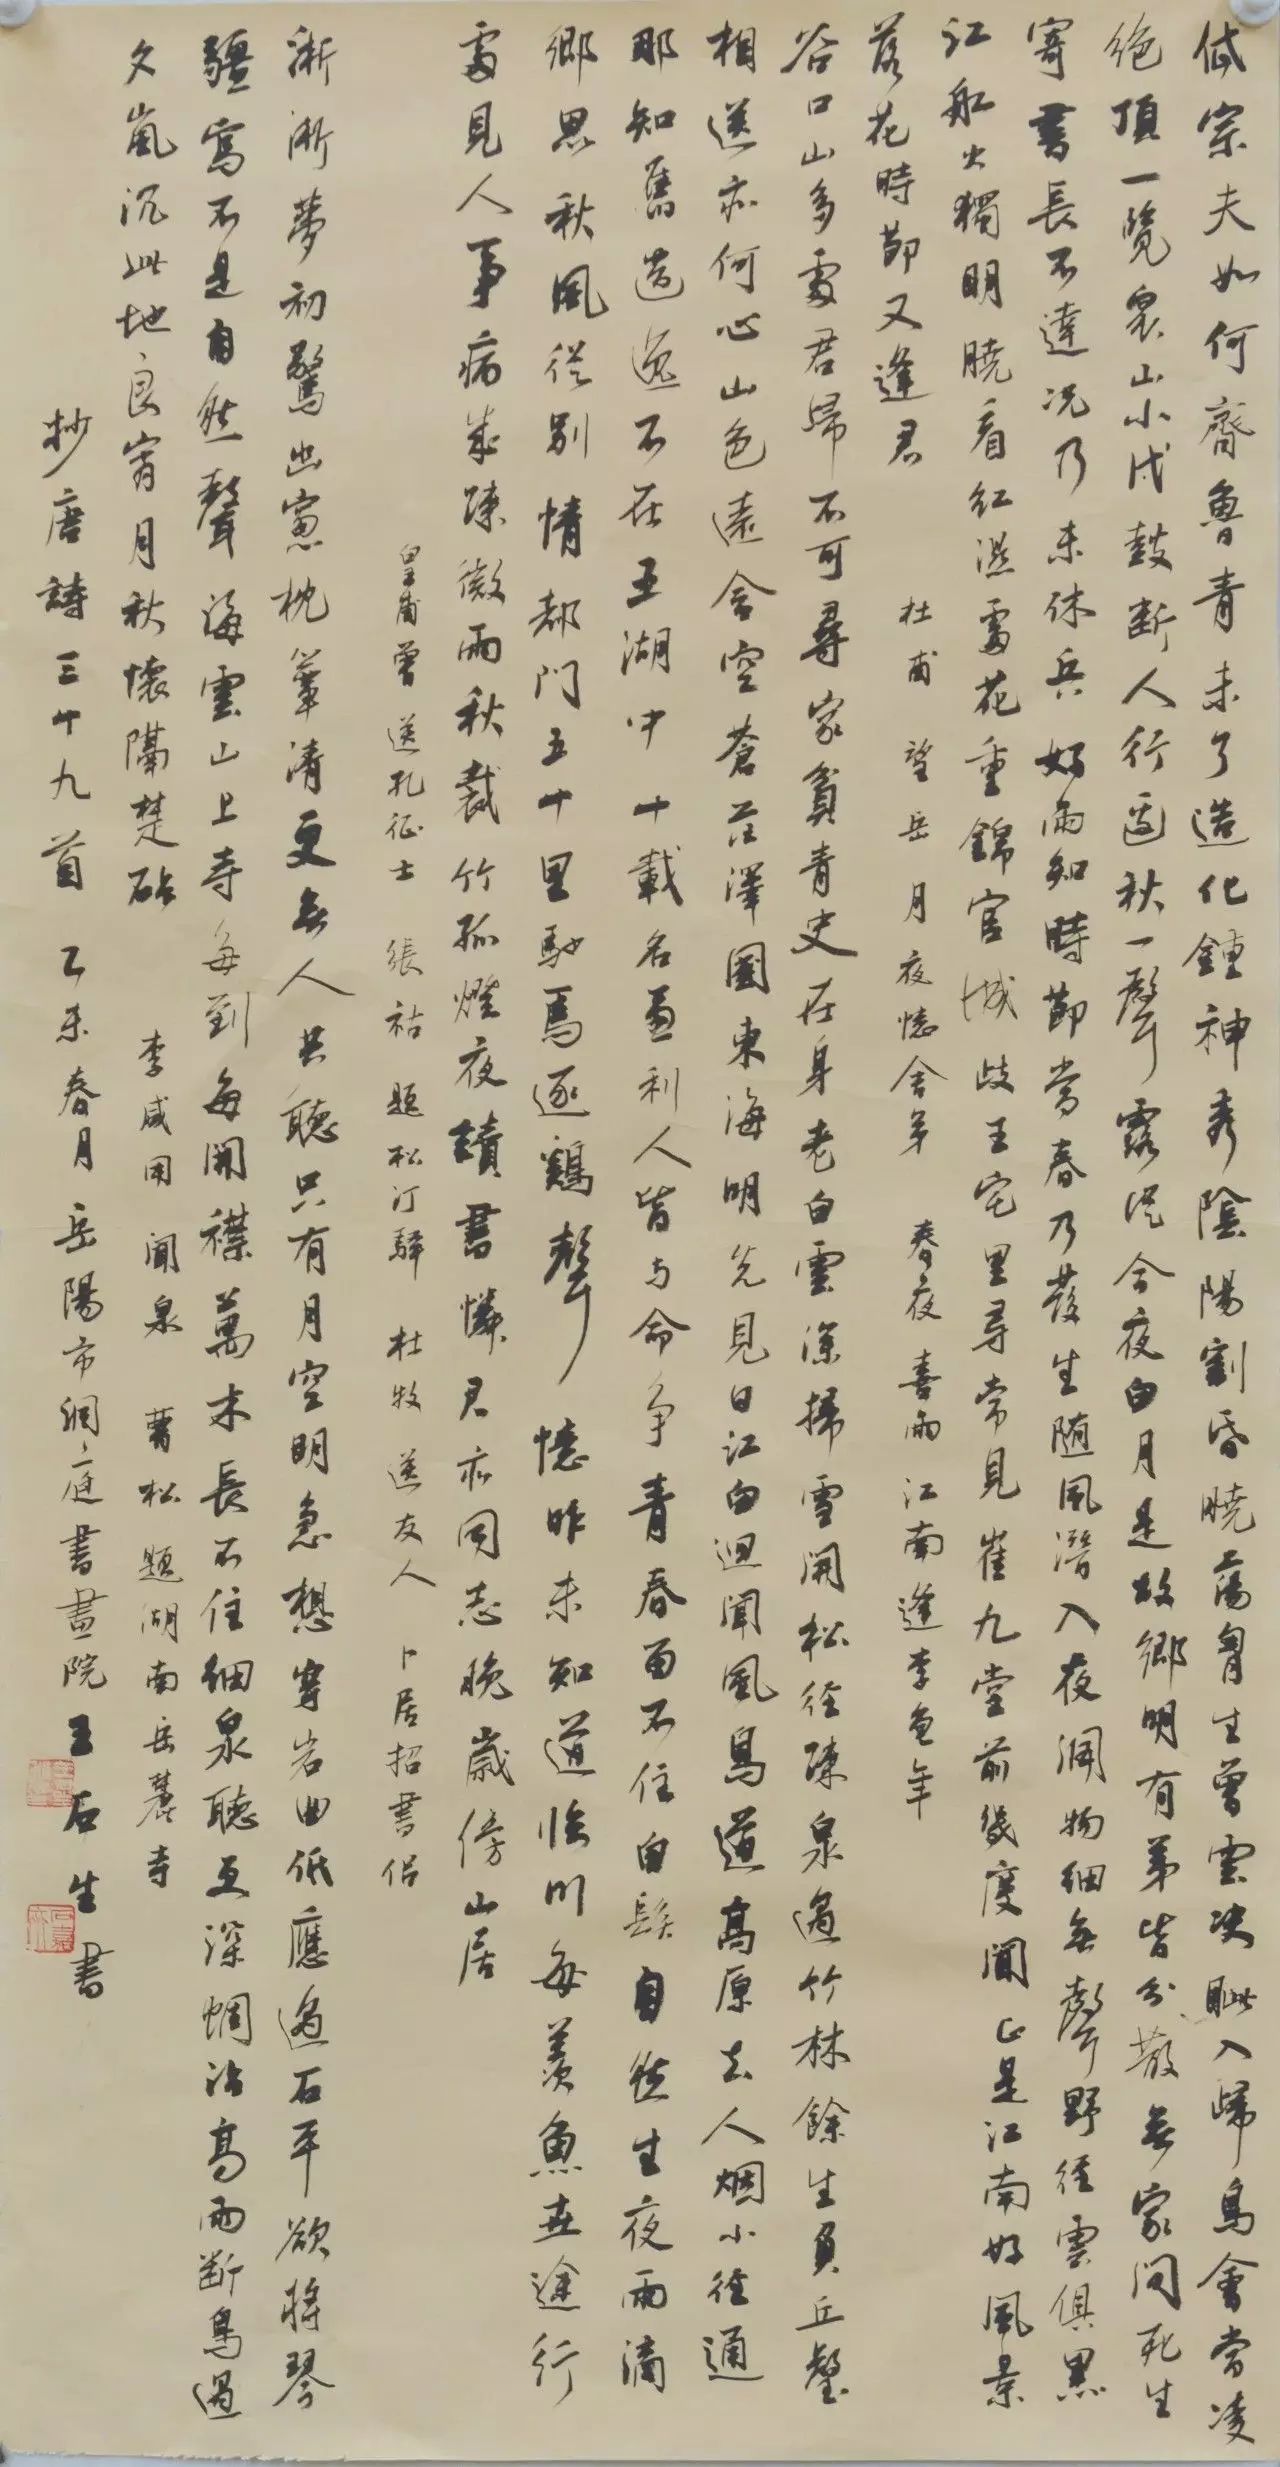 岱宗夫如何齊魯青未了造化鍾神秀陰陽割昏曉蕩胷生曾雲决眦入歸鳥會當凌
絶頂一覽衆山小戍鼓斷人行邊秋一聲露從今夜白月是故鄉明有弟皆分散無家問死生
寄書長不達况乃未休兵好雨知時節當春乃發生随風潛入夜潤物細無聲野徑雲俱黑
江船火獨明曉看紅濕處花重錦官城岐王宅里尋常見崔九堂前幾度聞正是江南好風景
落花時節又逢君
杜甫 望岳 月夜憶舍弟 春夜喜雨 江南逢李龜年
谷口山多處君歸不可尋家貧青史在身老白雲深掃雪開松徑疎泉過竹林餘生負丘壑
相送亦何心山色遠含空蒼茫澤國東海明先見日江白迥聞風鳥道高原去人烟小徑通
那知舊遺逸不在五湖中十載名兼利人皆與命争青春留不住白髮自然生夜雨滴
鄉思秋風從别情都門五十里馳馬逐鷄聲憶昨未知道臨川每羡魚世途行
處見人事病來疎微雨秋栽竹孤燈夜讀書憐君亦同志晚歲傍山居
皇甫曾 送孔征士 張祜 題松汀驛 杜牧 送友人 卜居招書侣
淅淅夢初驚幽窻枕簟清更無人共聽只有月空明急想穿岩曲低應過石平欲將琴
疆寫不是自然聲海雲山上寺每到每開襟萬木長不住細泉聽更深惆沾高雨斷鳥遇
夕嵐沉此地良宵月秋懷隔楚砧
李咸用 聞泉 曹松 題湖南岳麓寺
抄唐詩三十九首 乙未春月岳陽市洞庭書畫院王石生書